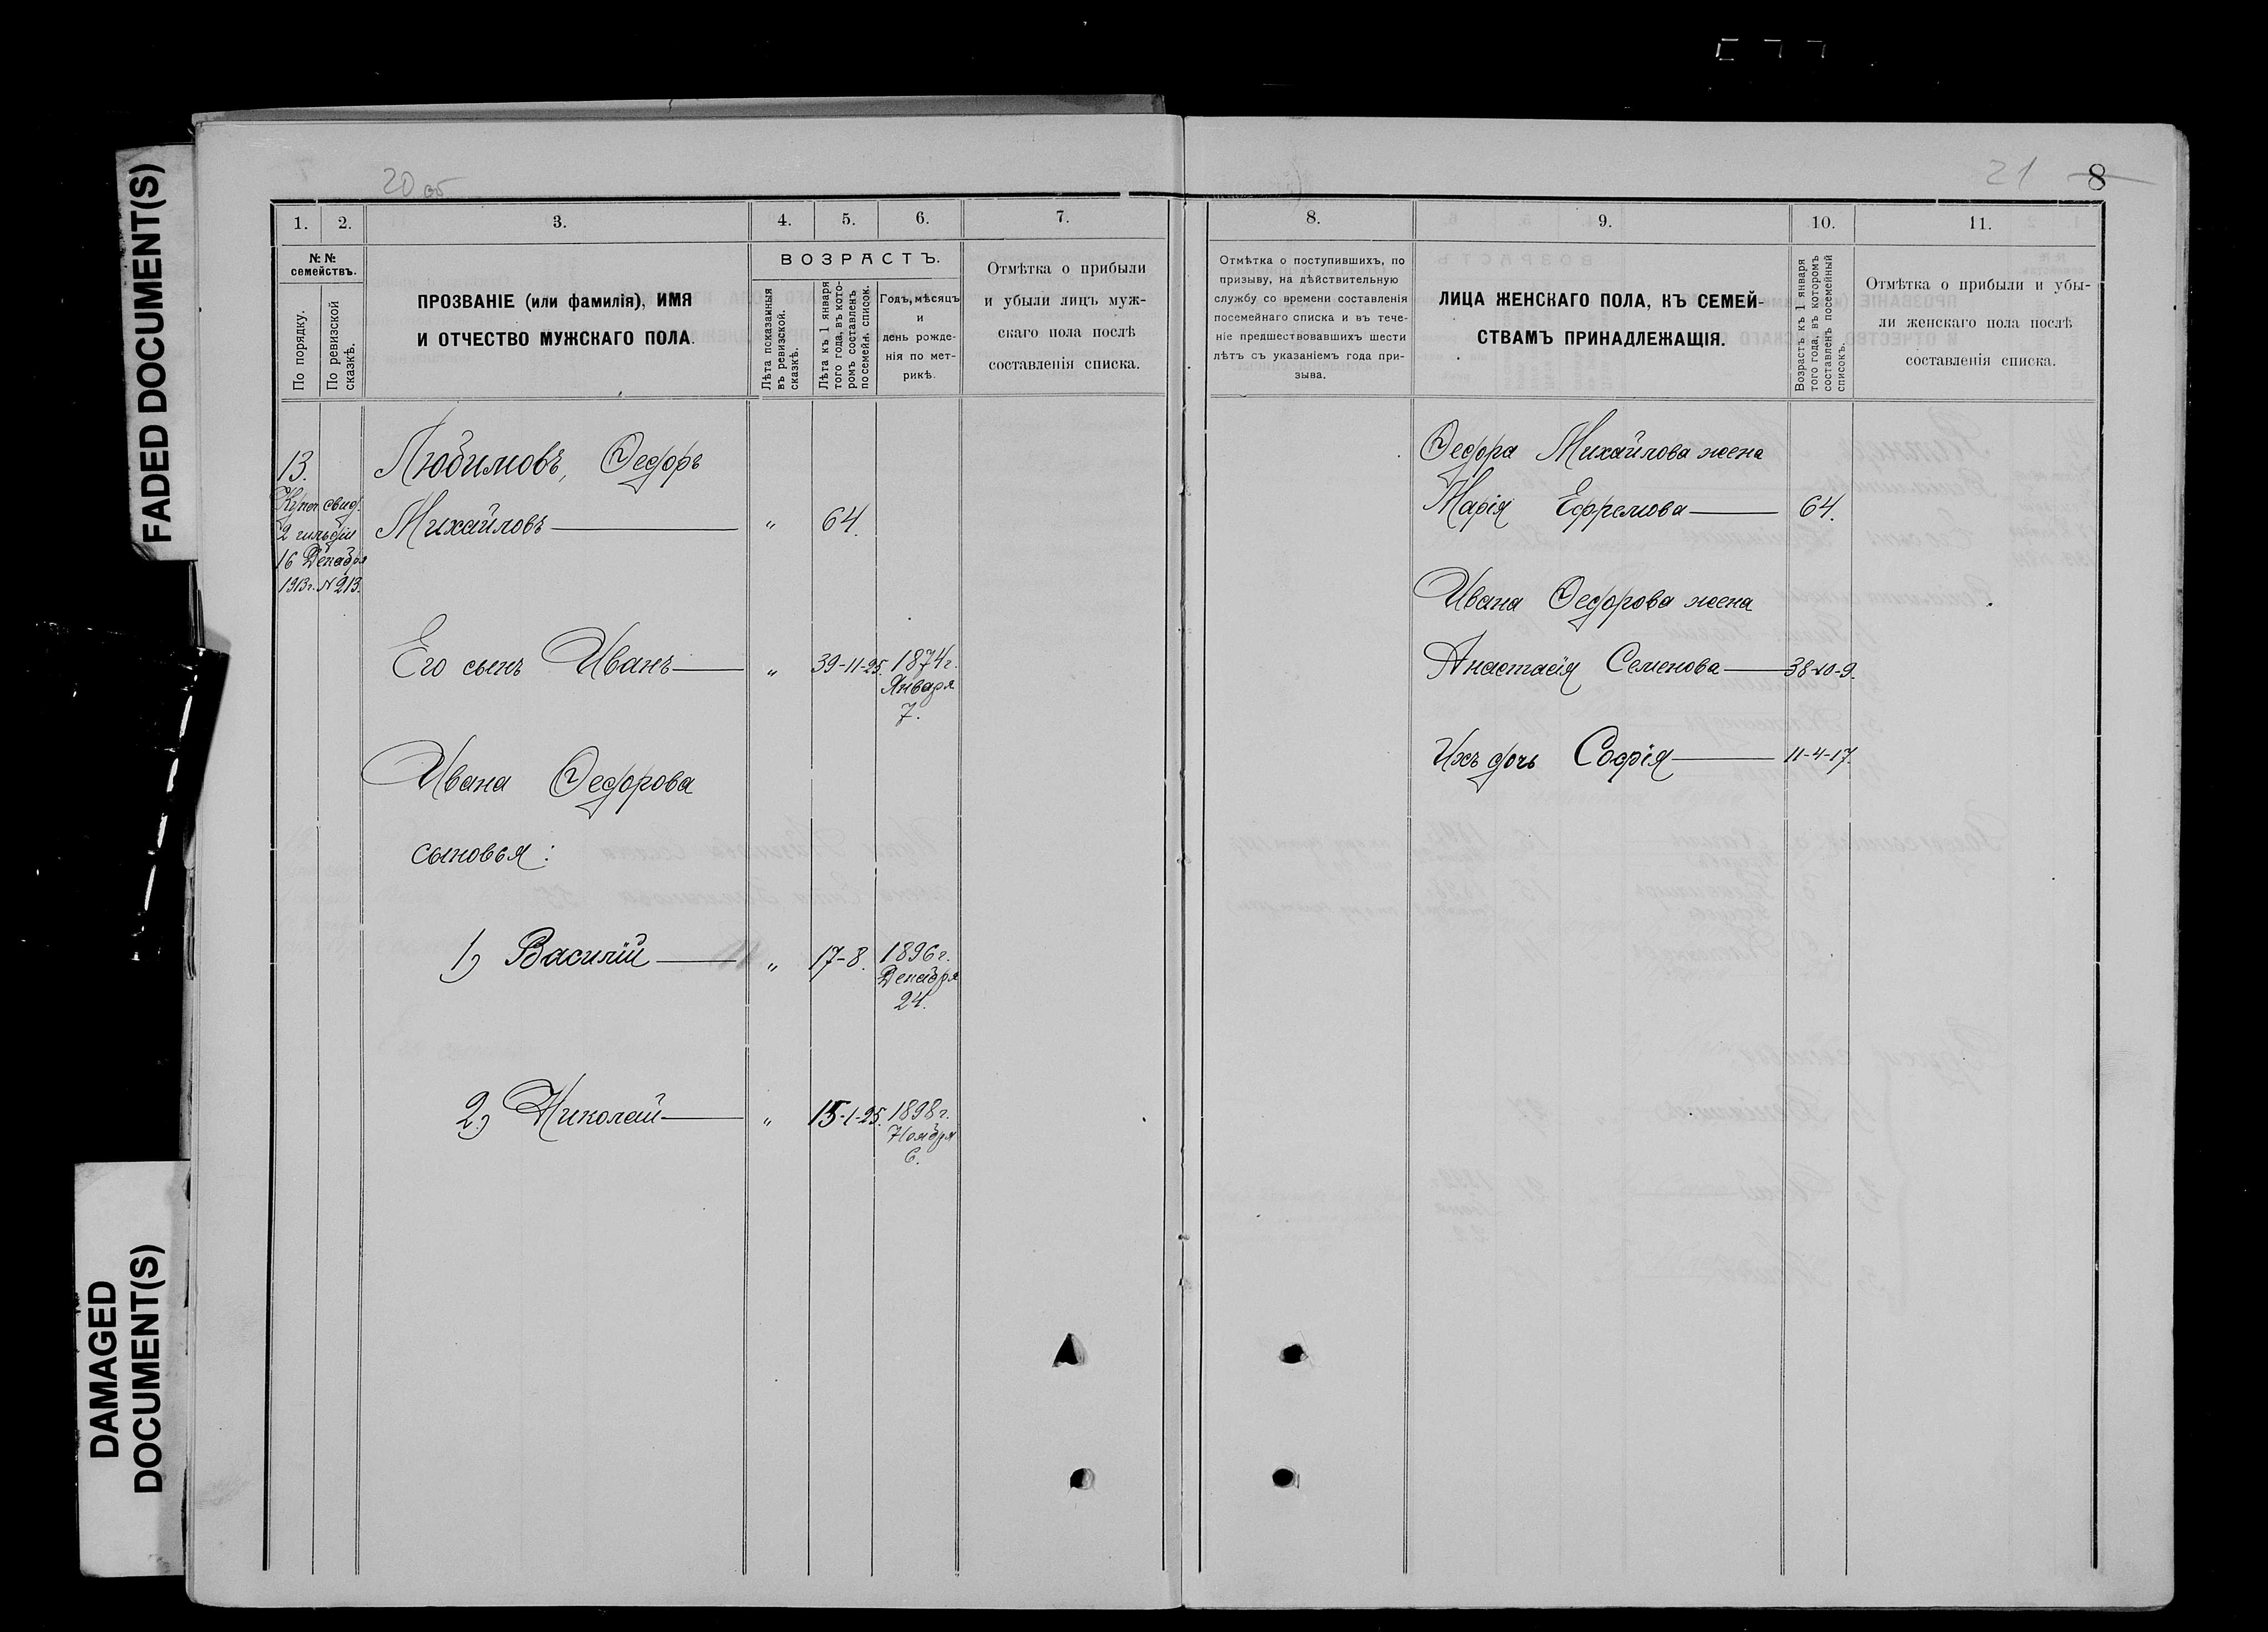 FADED DOCUMENT(S)
DAMAGED
DOCUMENT(S)
20 об
1. 2. 3. 4. 5. 6. 7.
№ №
семействъ.
По порядку.
По ревизской
сказкѣ.
ПРОЗВАНІЕ (или фамилія), ИМЯ
И ОТЧЕСТВО МУЖСКАГО ПОЛА.
ВОЗРАСТЪ.
Лѣта показанныя
въ ревизской.
сказкѣ.
Лѣта къ 1 января
того года, въ кото-
ромъ составленъ
посемейн. список.
Годъ, мѣсяцъ
и
день рожде-
нія по мет-
рикѣ.
Отмѣтка о прибыли
и убыли лицъ муж-
скаго пола послѣ
составленія списка.
13.
Купеч. свид.
2 гильдіи
16 Декабря
1913 г. № 213.
Любимовъ, Ѳедоръ
Михайловъ — „ 64.
Его сынъ Иванъ — „ 39-11-25. 1874 г.
Января
7.
Ивана Ѳедорова
сыновья:
1) Василій — „ 17-8. 1896 г.
Декабря
24.
2) Николай — „ 15-1-25. 1898 г.
Ноября
6.
21 8
8. 9. 10. 11.
Отмѣтка о поступившихъ, по
призыву, на дѣйствительную
службу со времени составленія
посемейнаго списка и въ тече-
ніе предшествовавшихъ шести
лѣтъ съ указаніемъ года при-
зыва.
ЛИЦА ЖЕНСКАГО ПОЛА, КЪ СЕМЕЙ-
СТВАМЪ ПРИНАДЛЕЖАЩІЯ.
Возрастъ къ 1 января
того года, въ которомъ
составленъ посемейный
списокъ.
Отмѣтка о прибыли и убы-
ли женскаго пола послѣ
составленія списка.
Ѳедора Михайлова жена
Марія Ефремова — 64.
Ивана Ѳедорова жена
Анастасія Семенова — 38-10-9.
Ихъ дочь Софія — 11-4-17.